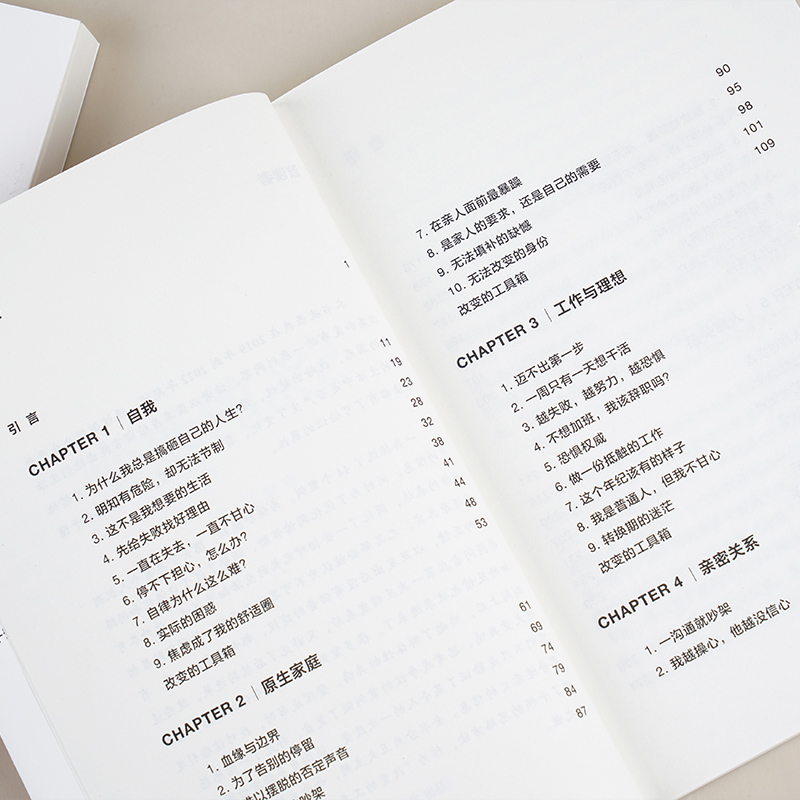 引言 1
CHAPTER 1 | 自我
1. 为什么我总是搞砸自己的人生？ 11
2. 明知有危险，却无法节制 19
3. 这不是我想要的生活 23
4. 先给失败找好理由 28
5. 一直在失去，一直不甘心 32
6. 停不下担心，怎么办？ 38
7. 自律为什么这么难？ 41
8. 实际的困惑 44
9. 焦虑成了我的舒适圈 48
改变的工具箱 53
CHAPTER 2 | 原生家庭
1. 血缘与边界 61
2. 为了告别的停留 69
以摆脱的否定声音 74
吵架 79
84
87
7. 在亲人面前最暴躁 90
8. 是家人的要求，还是自己的需要 95
9. 无法填补的缺憾 98
10. 无法改变的身份 101
改变的工具箱 109
CHAPTER 3 | 工作与理想
1. 迈不出第一步
2. 一周只有一天想干活
3. 越失败，越努力，越恐惧
4. 不想加班，我该辞职吗？
5. 恐惧权威
6. 做一份抵触的工作
7. 这个年纪该有的样子
8. 我是普通人，但我不甘心
9. 转换期的迷茫
改变的工具箱
CHAPTER 4 | 亲密关系
1. 一沟通就吵架
2. 我越操心，他越没信心